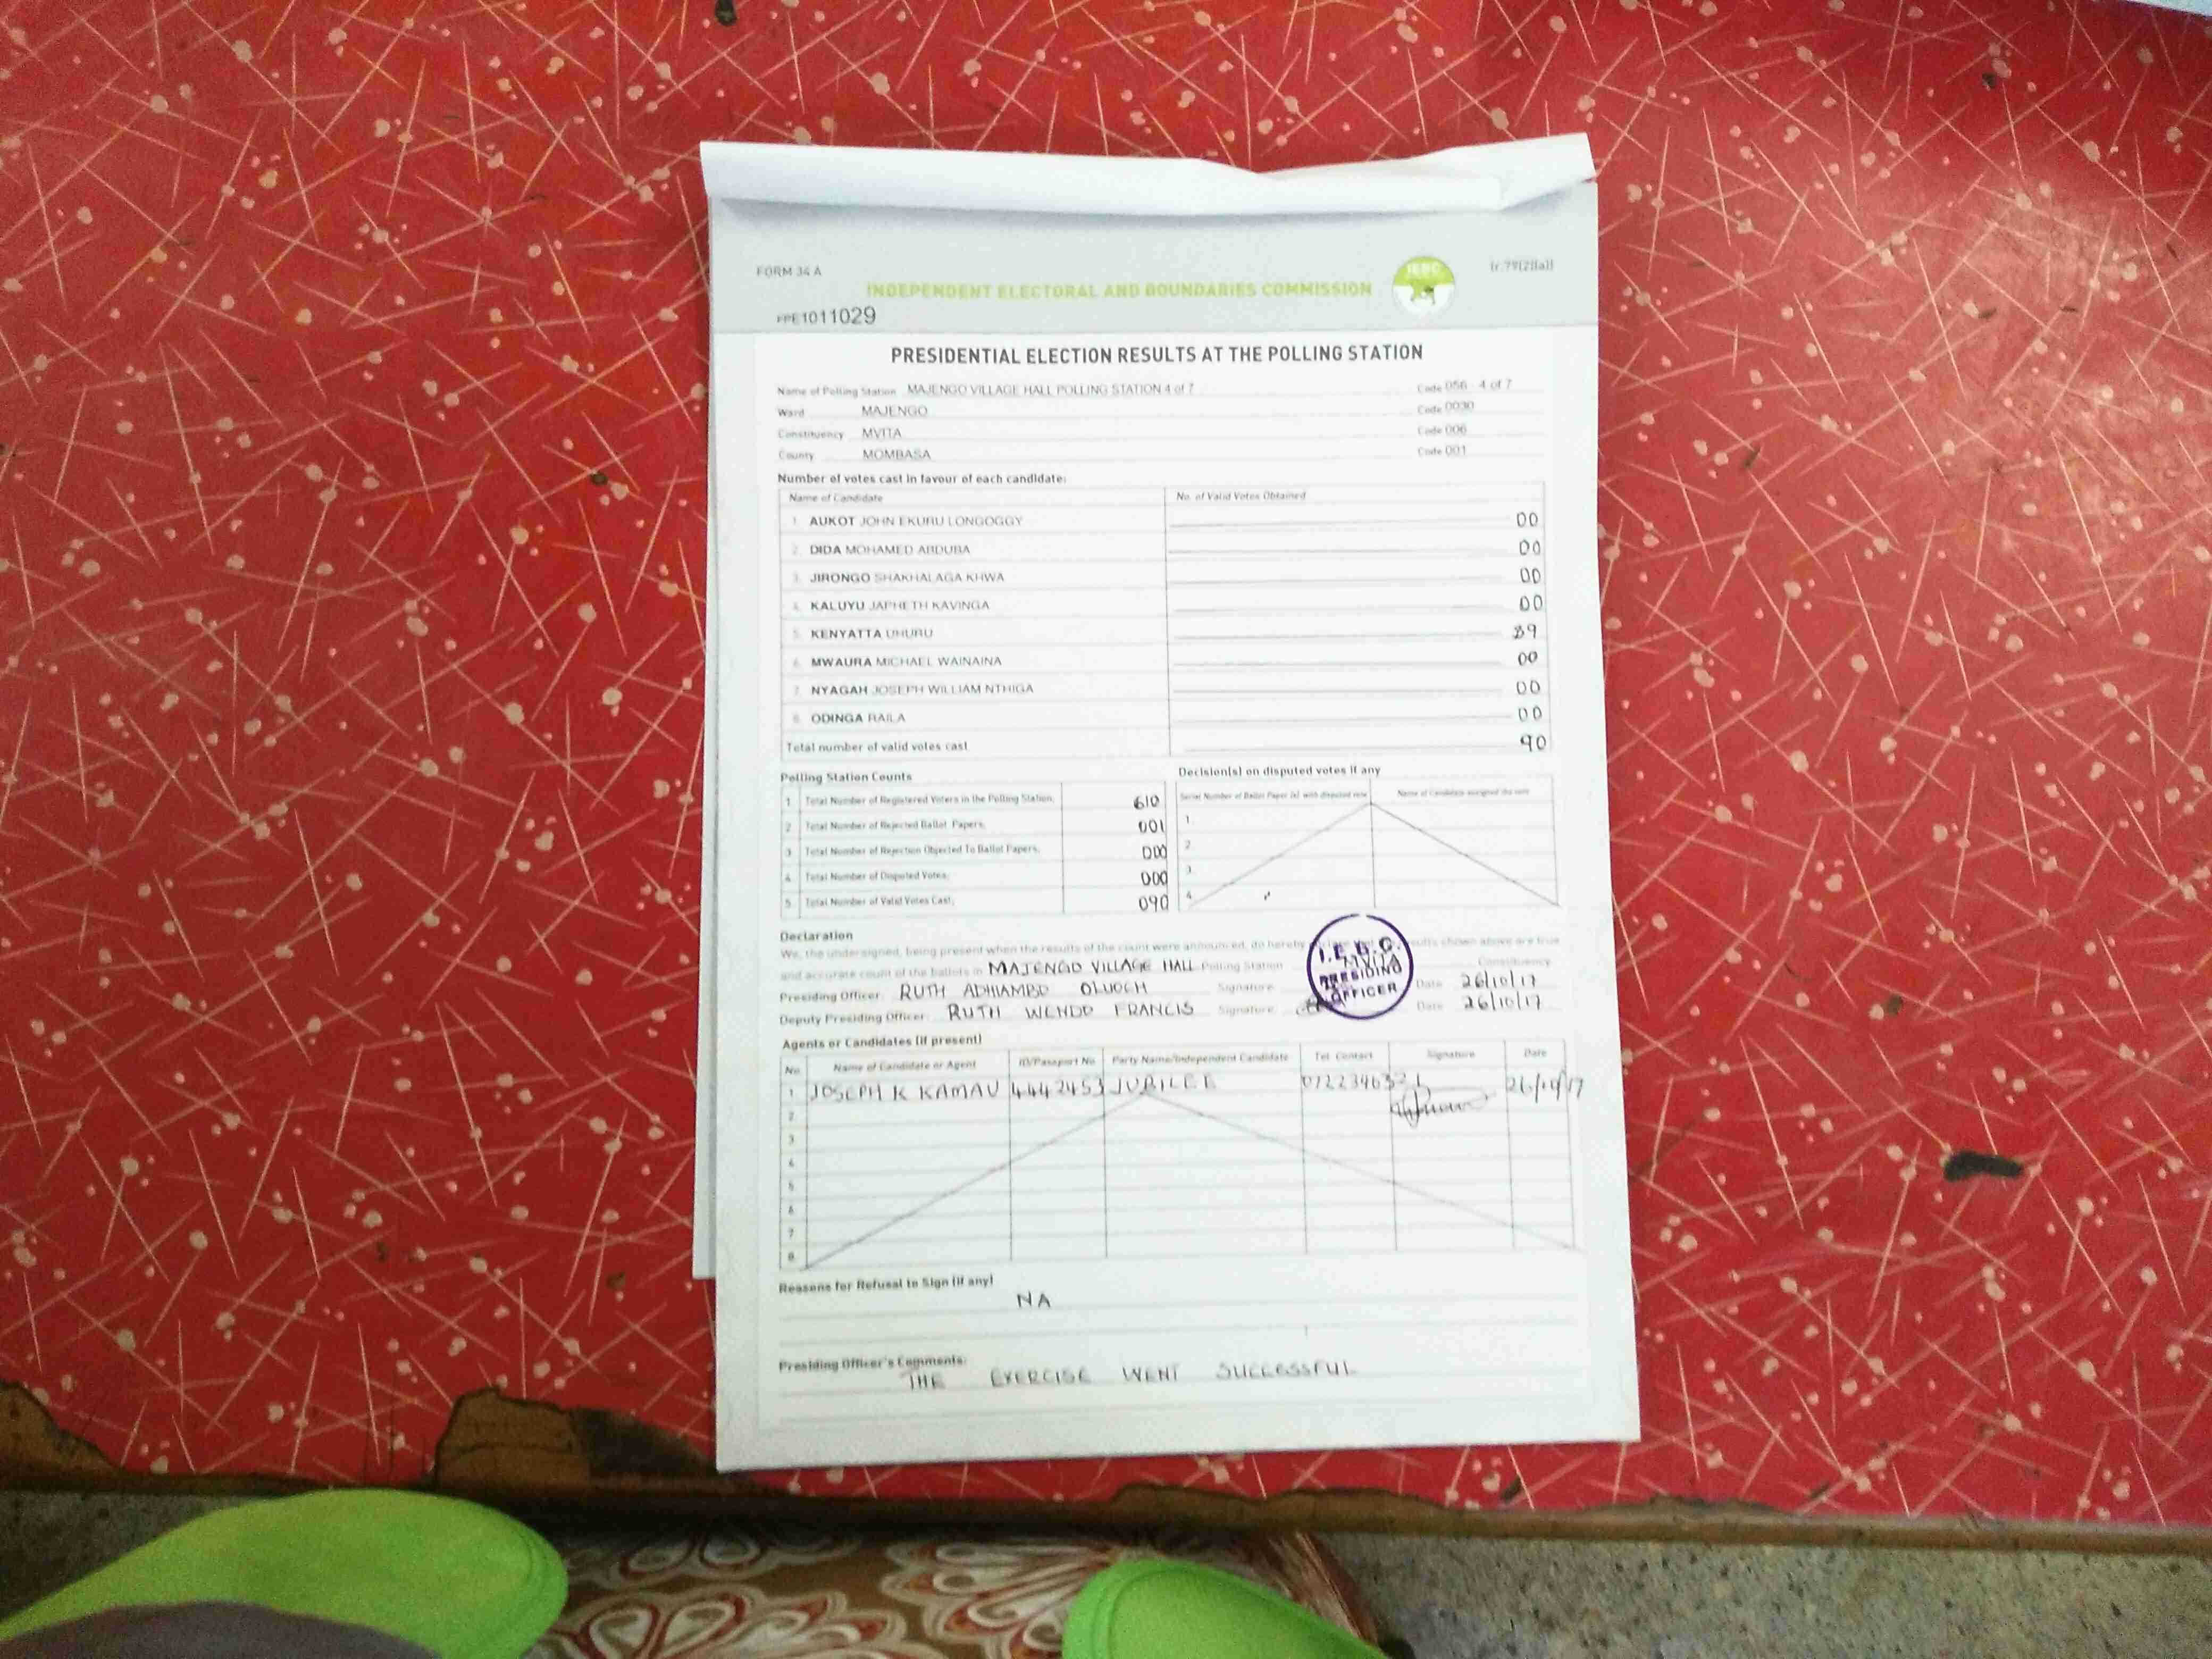 FORM 34 A
IEBC
(r.79(2)(a))
INDEPENDENT ELECTORAL AND BOUNDARIES COMMISSION
PPE1011029
PRESIDENTIAL ELECTION RESULTS AT THE POLLING STATION
Name of Polling Station MAJENGO VILLAGE HALL POLLING STATION 4 of 7 Code 056 - 4 of 7
Ward MAJENGO Code 0030
Constituency MVITA Code 006
County MOMBASA Code 001
Number of votes cast in favour of each candidate:
Name of Candidate No. of Valid Votes Obtained
1. AUKOT JOHN EKURU LONGOGGY 00
2. DIDA MOHAMED ABDUBA 00
3. JIRONGO SHAKHALAGA KHWA 00
4. KALUYU JAPHETH KAVINGA 00
5. KENYATTA UHURU 9
6. MWAURA MICHAEL WAINAINA 00
7. NYAGAH JOSEPH WILLIAM NTHIGA 00
8. ODINGA RAILA 00
Total number of valid votes cast 90
Polling Station Counts
1. Total Number of Registered Voters in the Polling Station. 610
2. Total Number of Rejected Ballot Papers. 001
3. Total Number of Rejection Objected To Ballot Papers. 000
4. Total Number of Disputed Votes. 000
5. Total Number of Valid Votes Cast. 090
Decision(s) on disputed votes if any
Serial Number of Ballot Paper (s) with disputed vote Name of Candidate assigned the vote
1
2
3
4
Declaration
We, the undersigned, being present when the results of the count were announced, do hereby declare that the results shown above are true
and accurate count of the ballots in MAJENGO VILLAGE HALL Polling Station MVITA Constituency
Presiding Officer: RUTH ADHIAMBO OLUOCH Signature Date 26/10/17
Deputy Presiding Officer: RUTH WENDO FRANCIS Signature Date 26/10/17
I.E.B.C.
PRESIDING
OFFICER
Agents or Candidates (if present)
No. Name of Candidate or Agent ID/Passport No. Party Name/Independent Candidate Tel. Contact Signature Date
1 JOSEPH K KAMAU 4442453 JUBILEE 0722346321 26/10/17
2
3
4
5
6
7
8
Reasons for Refusal to Sign (if any)
NA
Presiding Officer's Comments:
THE EXERCISE WENT SUCCESSFUL